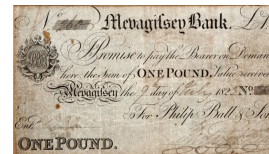 No Mevagissey Bank. £1
Promise to pay the Bearer on Deman
here the Sum of ONE POUND. Value received
Mevagissey the 9 day of July 182 No
For Philip Ball & Son
Ent.
ONE POUND.